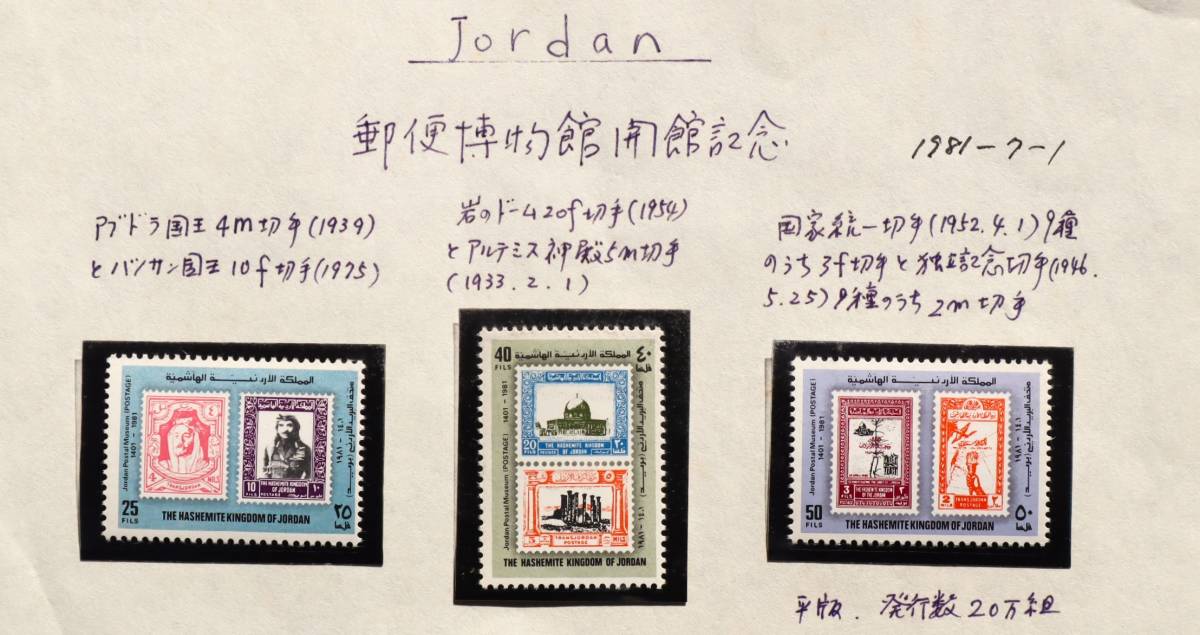 Jordan
郵便博物館開館記念
1981-7-1
アブドラ国王4m切手(1939)
とバンサン国王10f切手(1975)
岩のドーム20f切手(1954)
とアルテミス神殿5m切手
(1933.2.1)
国家統一切手(1952.4.1)9種
のうち3f切手と独立記念切手(1946.
5.25)9種のうち2m切手
المملكة الأردنية الهاشمية
Jordan Postal Museum (POSTAGE)
1401 - 1981
متحف البريد الأردني (بريد)
١٤٠١ - ١٩٨١
٤
4
MILS
TRANSJORDAN
10
FILS
١٠
THE HASHEMITE KINGDOM
OF JORDAN
POSTAGE
25
FILS
THE HASHEMITE KINGDOM OF JORDAN
٢٥
فلسا
40
FILS
المملكة الأردنية الهاشمية
٤٠
فلسا
Jordan Postal Museum (POSTAGE)
1401 - 1981
متحف البريد الأردني (بريد)
١٤٠١ - ١٩٨١
20
FILS
THE HASHEMITE KINGDOM
OF JORDAN
٢٠
فلسا
5
MILS
TRANSJORDAN
POSTAGE
THE HASHEMITE KINGDOM OF JORDAN
المملكة الأردنية الهاشمية
Jordan Postal Museum (POSTAGE)
1401 - 1981
متحف البريد الأردني (بريد)
١٤٠١ - ١٩٨١
3
FILS
THE HASHEMITE KINGDOM
OF THE JORDAN
٣
2
TRANSJORDAN
POSTAGE
٢
50
FILS
THE HASHEMITE KINGDOM OF JORDAN
٥٠
فلسا
平版. 発行数20万組